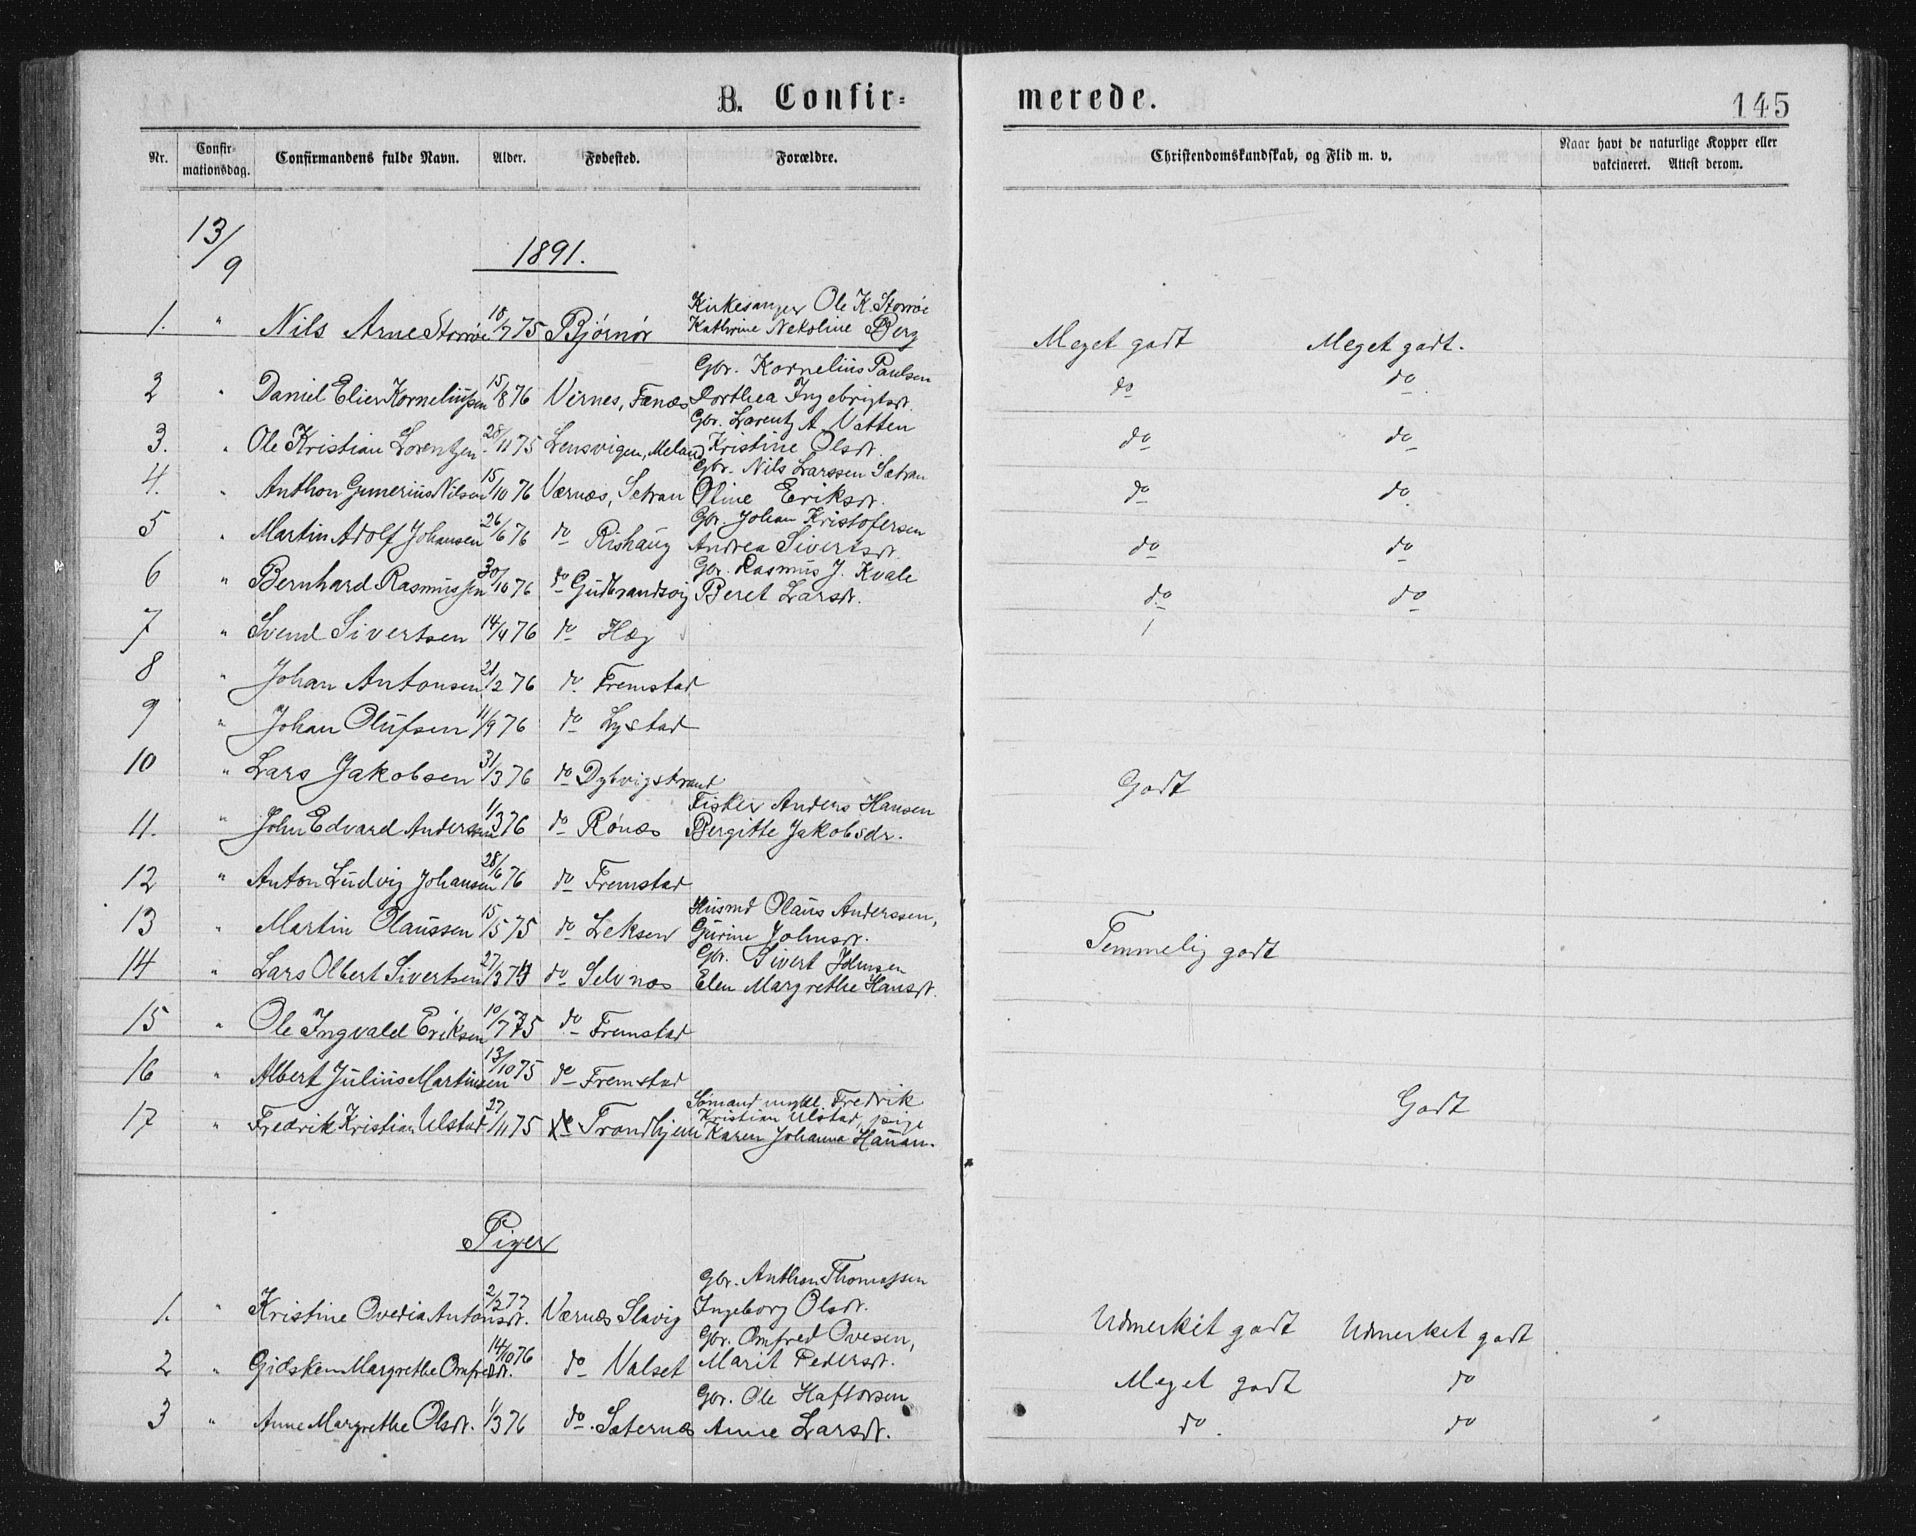 B. Confir=
merede.
145
Nr. Confir-mationsdag. Confirmandens fulde Navn. Alder. Fødested. Forældre. Christendomskundskab, og Flid m. v. Naar havt de naturlige Kopper eller vakcineret. Attest derom.
13/9
1891.
Kirkesanger Ole K. Storrøe
1. " Nils Arne Storrøe 18/7 75 Bjørnør Kathrine Nekoline Berg Meget godt Meget godt.
Gbr. Kornelius Paulsen
2 " Daniel Elier Korneliussen 15/8 76 Virnes, Fænes Dorthea Ingebrigtsdt. do do
Gbr. Larentz A. Vatten
3. " Ole Kristian Lorentzen 28/11 75 Lensvigen, Meland Kristine Olsdt. do do
Gbr. Nils Larssen Sætran
4. " Anthon Gunerius Nilsen 15/10 76 Værnæs, Setran Oline Eriksdt. do do
Gbr. Johan Kristofersen
5 " Martin Adolf Johansen 26/6 76 do Rishaug Andrea Sivertsdt. do do
Gbr. Rasmus J. Kvale
6 " Bernhard Rasmussen 30/10 76 do Gudbrandsvig Beret Larsdt. do do
7 " Svend Sivertsen 14/4 76 do Hæg
8 " Johan Antonsen 21/2 76 do Fremstad
9 " Johan Olufsen 11/9 76 do Lystad
10 " Lars Jakobsen 31/3 76 do Dybvigstrand Godt
Fisker Anders Hansen
11. " John Edvard Anderssen 1/3 76 do Rønæs Bergitte Jakobsdr.
12 " Anton Ludvig Johansen 28/6 76 do Fremstad
Husmd Olaus Anderssen,
13 " Martin Olaussen 15/5 75 do Leksen Gurine Johnsdt. Temmelig godt
Gbr. Sivert Johnsen
14 " Lars Olbert Sivertsen 27/3 74 do Selvnæs Elen Margrethe Hansdt.
15 " Ole Ingvald Eriksen 10/7 75 do Fremstad
16 " Albert Julius Martinsen 13/10 75 do Fremstad
Sømand ungkl. Fredrik Godt
Kristian Ulstad, pige
17 " Fredrik Kristian Ulstad 27/11 75 do Trondhjem Karen Johanna Hauan.
Piger
Gbr. Anthon Thomassen
1. " Kristine Ovedia Antonsdt. 2/2 77 Værnæs Slavig Ingeborg Olsdt. Udmerket godt Udmerket godt
Gbr. Omfred Ovesen,
2 " Gidsken Margrethe Omfredsdt. 14/10 76 do Valset Marit Pedersdt. Meget godt do
Gbr. Ole Haftorsen
3 " Anne Margrethe Olsdt. 1/3 76 do. Sæternæs Anne Larsdt. do do